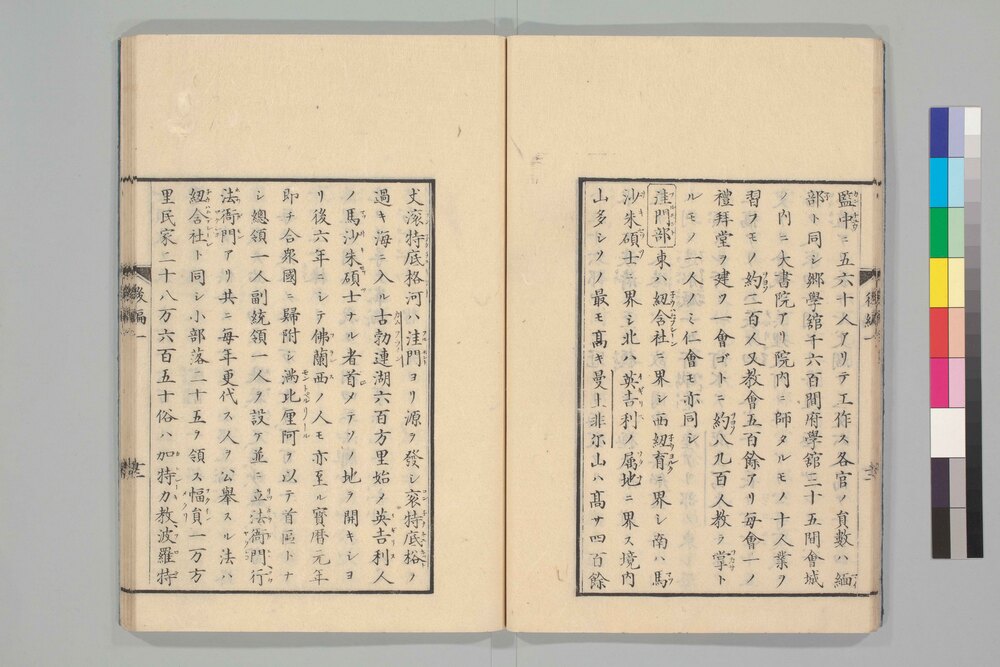 監中ニ五六十人アリテ工作ス各官ノ員數ハ緬
部ト同シ郷學舘千六百間府學舘三十五間會城
ノ内ニ大書院アリ院内ニ師タルモノ十人業ヲ
習フモノ約二百人又教會五百餘アリ每會一ノ
禮拜堂ヲ建ツ一會ゴトニ約八九百人教ヲ掌ト
ルモノ一人ノミ仁會モ亦同シ
洼門部東ハ紐含社ニ界シ西紐育ニ界シ南ハ馬
沙朱碩士ニ界シ北ハ英吉利ノ属地ニ界ス境内
山多シソノ最モ髙キ曼土非尓山ハ髙サ四百餘
丈滚特底格河ハ洼門ヨリ源ヲ發シ滚特底格ノ
過キ海ニ入ル古勃連湖六百方里始メ英吉利人
ノ馬沙朱碩士ナル者首メテソノ地ヲ開キシヨ
リ後六年ニシテ佛蘭西ノ人モ亦至ル寳暦元年
即チ合衆國ニ歸附シ満比厘阿ヲ以テ首區トナ
シ總領一人副統領一人ヲ設ケ並ニ立法衙門行
法衙門アリ共ニ每年更代ス人ヲ公舉スル法ハ
紐含社ト同シ小部落二十五ヲ領ス幅員一万方
里民家二十八万六百五十俗ハ加特力教波羅特
後編一
後編一